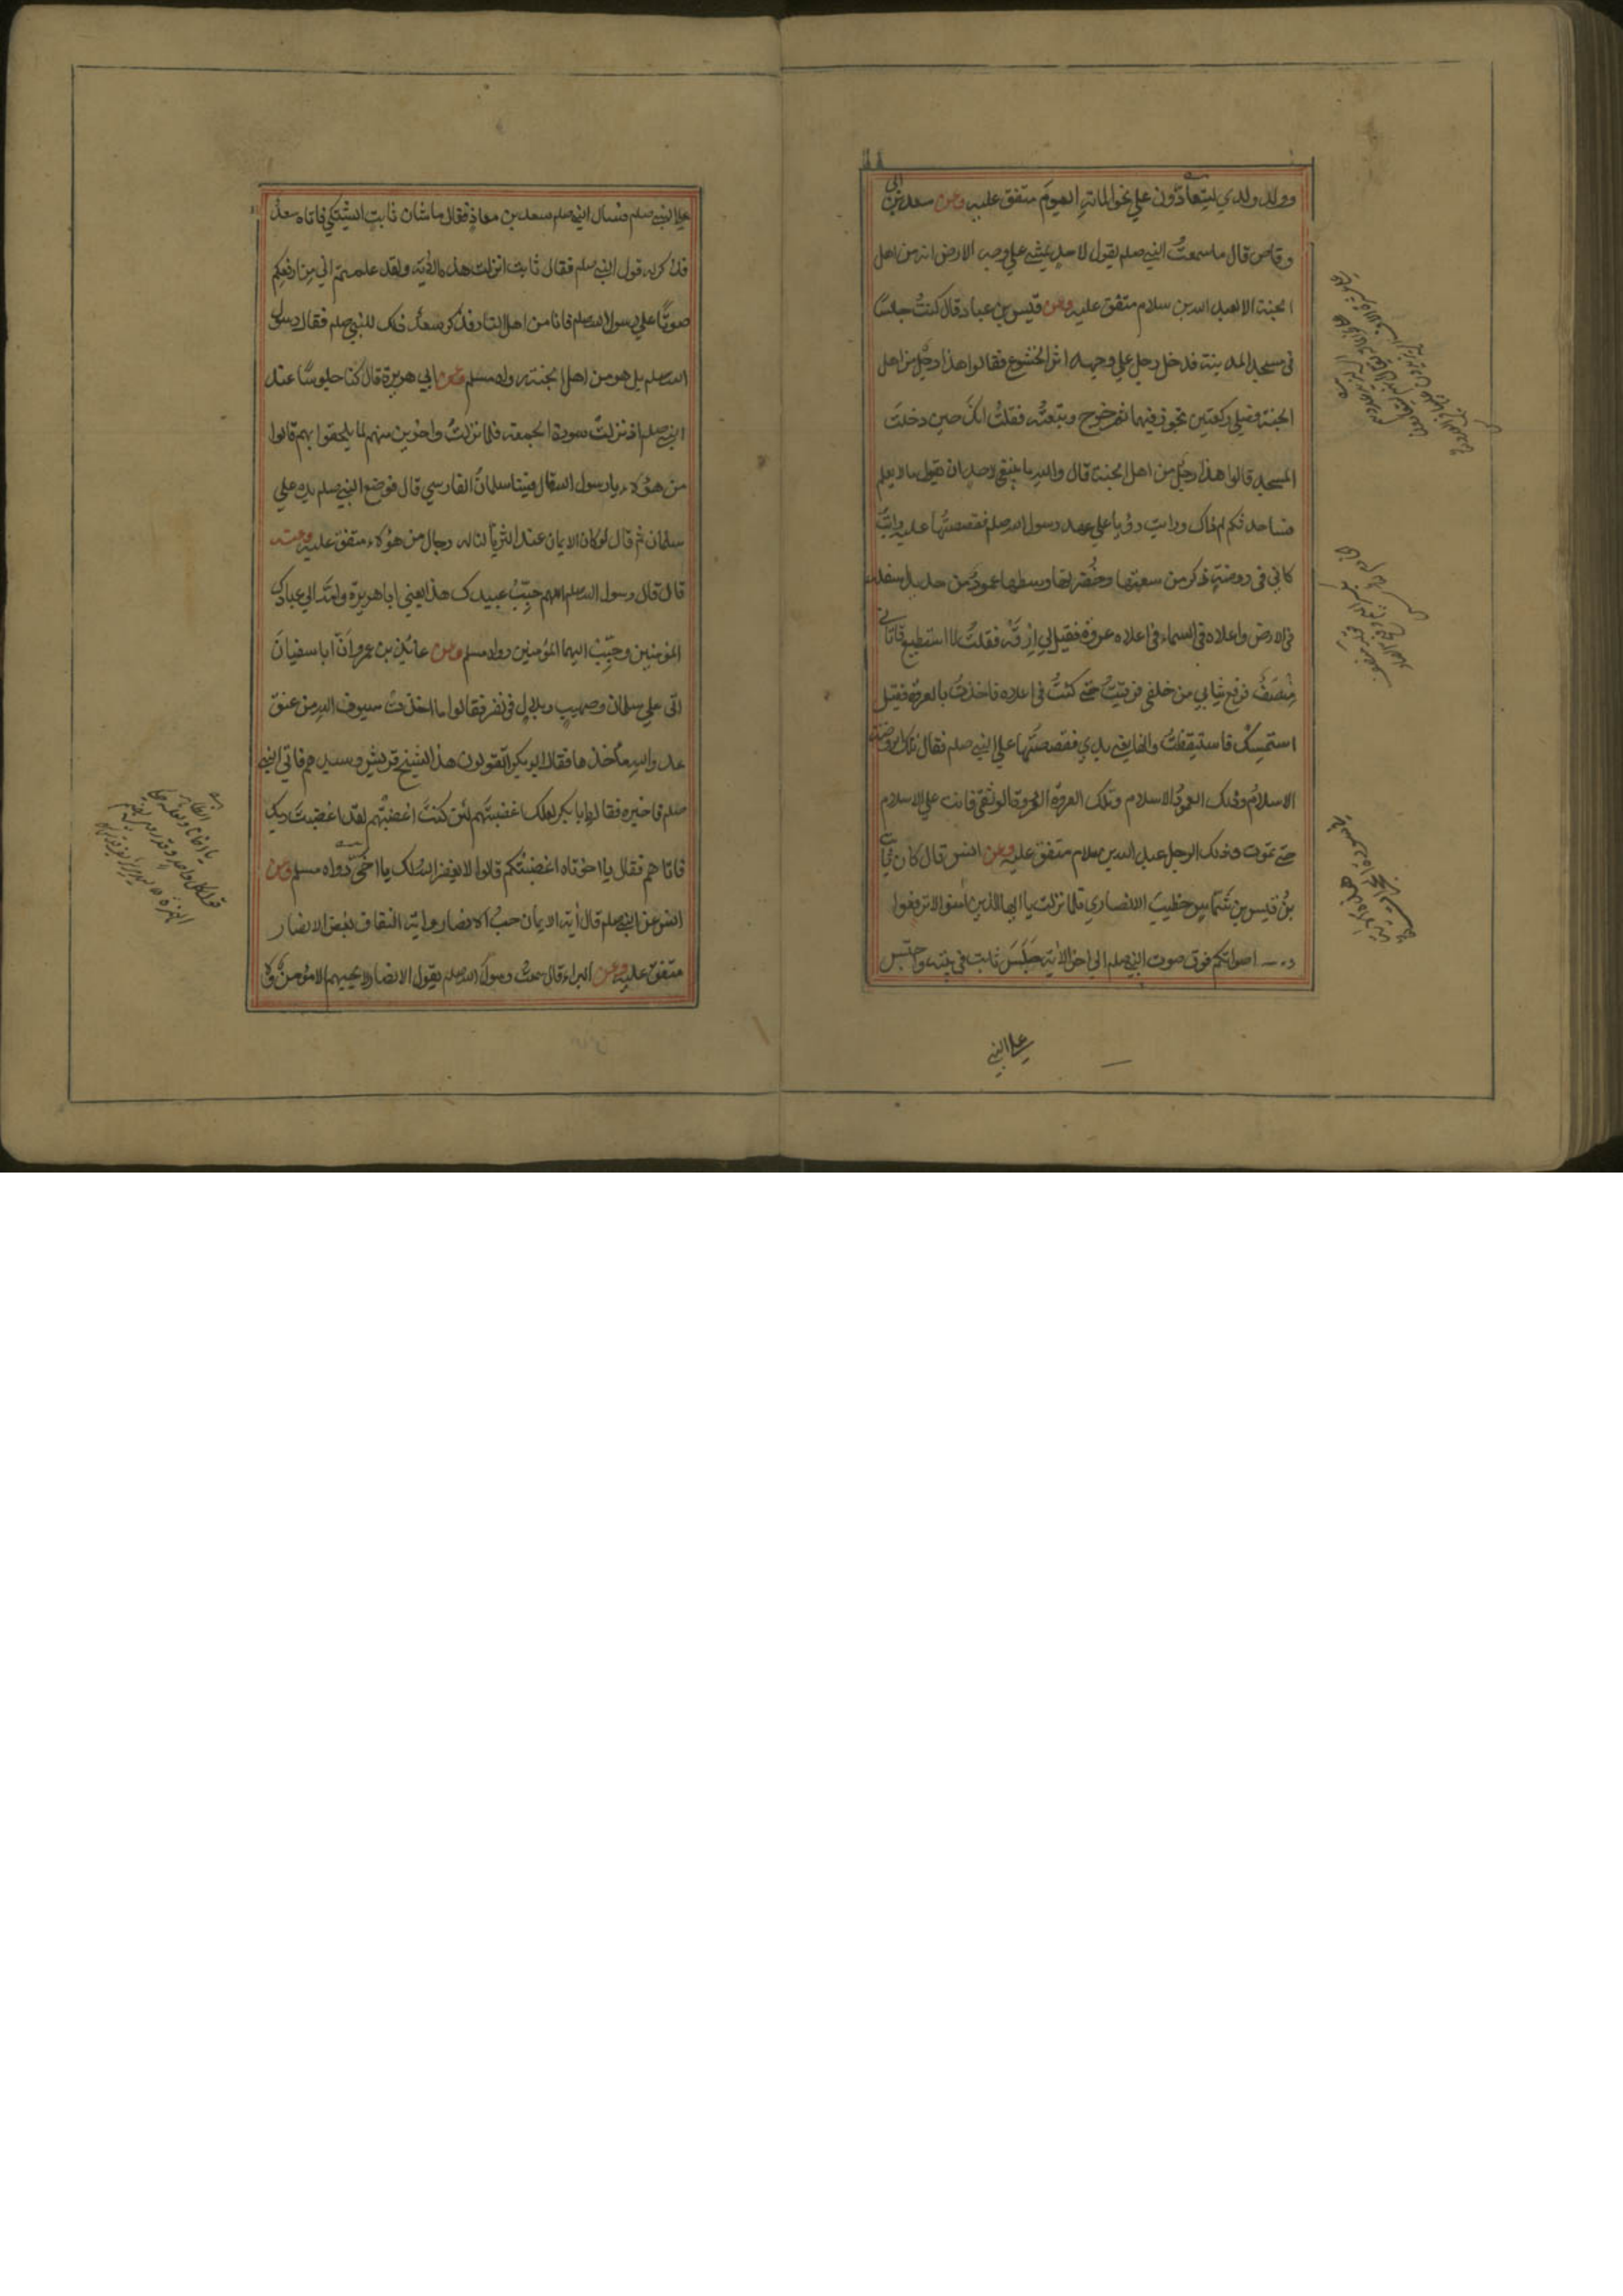 وولد ولدي ليتعادّون علي نحو المائة اليوم متفق عليه وعن سعد بن ابي
وقاص قال ما سمعت النبي صلم يقول لاحد يمشي علي وجه الارض انه من اهل
الجنة الا لعبد الله بن سلام متفق عليه وعن قيس بن عباد قال كنتُ جالسًا
في مسجد المدينة فدخل رجل علي وجهه اثر الخشوع فقالوا هذا رجل من اهل
الجنة فصلي ركعتين تجوز فيهما ثم خرج وتبعته فقلت انك حين دخلت
المسجد قالوا هذا رجل من اهل الجنة قال والله ما ينبغي لاحد ان يقول ما لا يعلم
فساحدثكم لم ذاك ورايت رؤيا علي عهد رسول الله صلم فقصصتها عليه ورايت
كاني في روضة ذكر من سعتها وخضرتها وسطها عمود من حديد اسفله
في الارض واعلاه في السماء في اعلاه عروة فقيل لي ارقه فقلت لا استطيع فاتاني
مِنْصَفٌ فرفع ثيابي من خلفي فرقيت حتي كنت في اعلاه فاخذت بالعروة فقيل
استمسك فاستيقظت وانها لفي يدي فقصصتها علي النبي صلم فقال تلك الروضة
الاسلام وذلك العمود الاسلام وتلك العروة العروة الوثقي فانت علي الاسلام
حتي تموت وذلك الرجل عبد الله بن سلام متفق عليه وعن انس قال كان ثابت
بن قيس بن شماس خطيب الانصاري فلما نزلت يا ايها الذين امنوا لا ترفعوا
اصواتكم فوق صوت النبي صلم الي اخر الاية جلس ثابت في بيته واحتبس
علي النبي
علي النبي صلم فسال النبي صلم سعد بن معاذ فقال ما شان ثابت اشتكي فاتاه سعد
فذكر له قول النبي صلم فقال ثابت انزلت هذه الاية ولقد علمتم اني من ارفعكم
صوتًا علي رسول الله صلم فانا من اهل النار فذكر سعد ذلك للنبي صلم فقال رسول
الله صلم بل هو من اهل الجنة رواه مسلم وعن ابي هريرة قال كنا جلوسًا عند
النبي صلم اذ نزلت سورة الجمعة فلما نزلت واخرين منهم لما يلحقوا بهم قالوا
من هؤلاء يا رسول الله قال وفينا سلمان الفارسي قال فوضع النبي صلم يده علي
سلمان ثم قال لو كان الايمان عند الثريا لناله رجال من هؤلاء متفق عليه وعنه
قال قال رسول الله صلم اللهم حبّب عبيدك هذا يعني ابا هريرة وامّه الي عبادك
المؤمنين وحبّب اليهما المؤمنين رواه مسلم وعن عائذ بن عمرو انّ ابا سفيان
اتي علي سلمان وصهيب وبلال في نفر فقالوا ما اخذت سيوف الله من عنق
عدو الله ماخذها فقال ابو بكر اتقولون هذا لشيخ قريش وسيدهم فاتي النبي
صلم فاخبره فقال يا ابا بكر لعلك اغضبتهم لئن كنت اغضبتهم لقد اغضبت ربك
فاتاهم فقال يا اخوتاه اغضبتكم قالوا لا يغفر الله لك يا اخيّ رواه مسلم وعن
انس عن النبي صلم قال اية الايمان حب الانصار واية النفاق بغض الانصار
متفق عليه وعن البراء قال سمعت رسول الله صلم يقول الانصار لا يحبهم الا مؤمن ولا